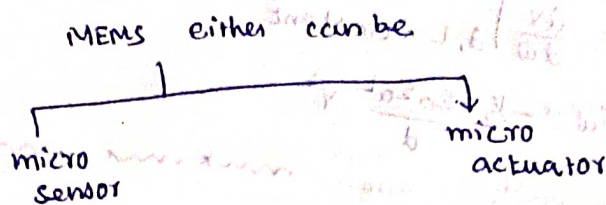 MEMS either can be
micro sensor
micro actuator